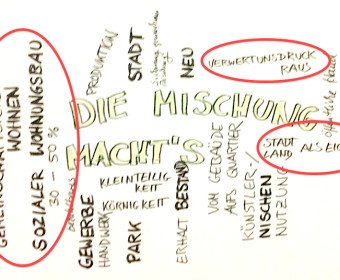 WOHNEN
SOZIALER WOHNUNGSBAU
30 - 50 %
PRODUKTION
STADT
NEU
VERWERTUNGSDRUCK
RAUS
DIE MISCHUNG
MACHT'S
STADT
LAND ALS
KLEINTEILIG
KEIT
KÖRNIGKEIT
GEWERBE
HANDWERK
PARK
ERHALT BESTAND
VOM GEBÄUDE
AUFS QUARTIER
KÜNSTLER-/
NISCHEN
NUTZUNG